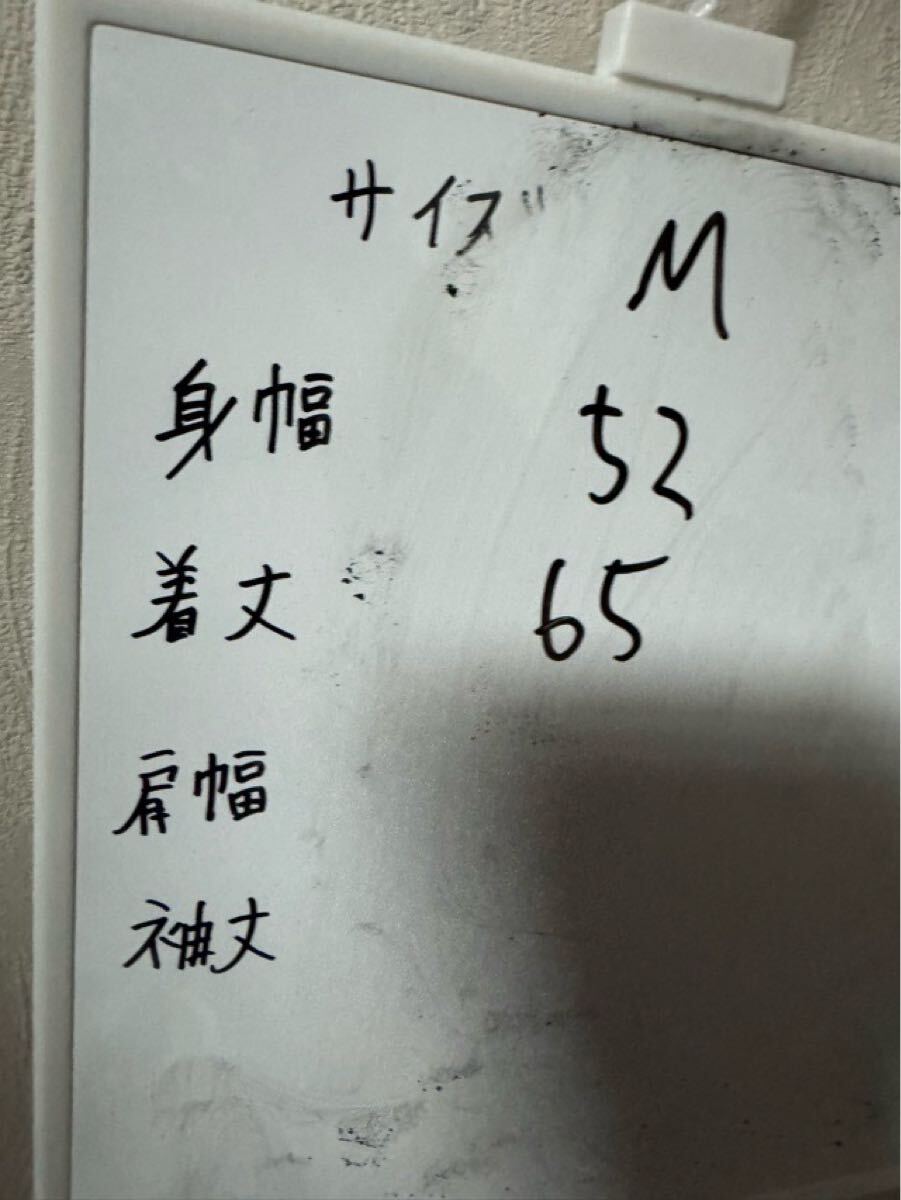 サイズ M
身幅 52
着丈 65
肩幅
袖丈